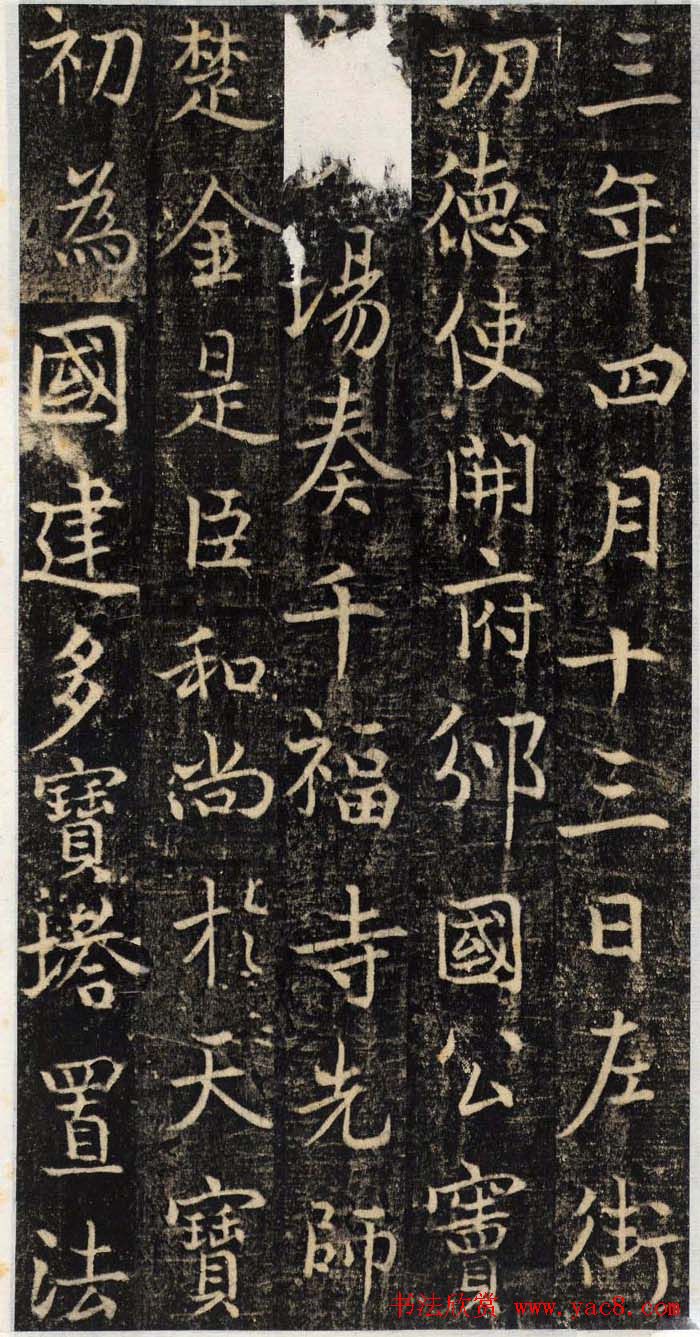 三年四月十三日左街
功德使開府邠國公竇
場奏千福寺先師
楚金是臣和尚於天寶
初為國建多寶塔置法
书法欣赏 www.yac8.com